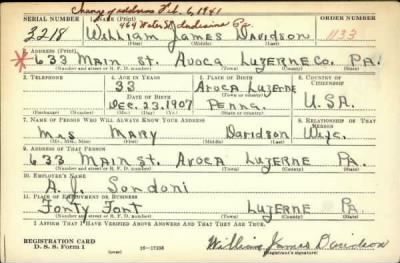 Change of address Feb. 6, 1941
464 Water St.
SERIAL NUMBER 1. NAME (Print) ORDER NUMBER
3218 William James Davidson 1133
(First) (Middle) (Last)
2. ADDRESS (Print)
633 MAIN St. AVOCA LUZERNE Co. PA.
(Number and street or R. F. D. number) (Town) (County) (State)
3. TELEPHONE 4. AGE IN YEARS 5. PLACE OF BIRTH 6. COUNTRY OF CITIZENSHIP
33 AVOCA LUZERNE
(Town or county)
DATE OF BIRTH
DEC. 23, 1907 PENNA. U.S.A.
(Exchange) (Number) (Mo.) (Day) (Yr.) (State or country)
7. NAME OF PERSON WHO WILL ALWAYS KNOW YOUR ADDRESS 8. RELATIONSHIP OF THAT PERSON
MRS MARY Davidson Wife.
(Mr., Mrs., Miss) (First) (Middle) (Last)
9. ADDRESS OF THAT PERSON
633 MAIN St. AVOCA LUZERNE PA.
(Number and street or R. F. D. number) (Town) (County) (State)
10. EMPLOYER'S NAME
A. J. Sordoni
11. PLACE OF EMPLOYMENT OR BUSINESS
Forty Fort LUZERNE PA.
(Number and street or R. F. D. number) (Town) (County) (State)
I AFFIRM THAT I HAVE VERIFIED ABOVE ANSWERS AND THAT THEY ARE TRUE.
REGISTRATION CARD
D. S. S. Form 1 (over) 16-17105 William James Davidson
(Registrant's signature)